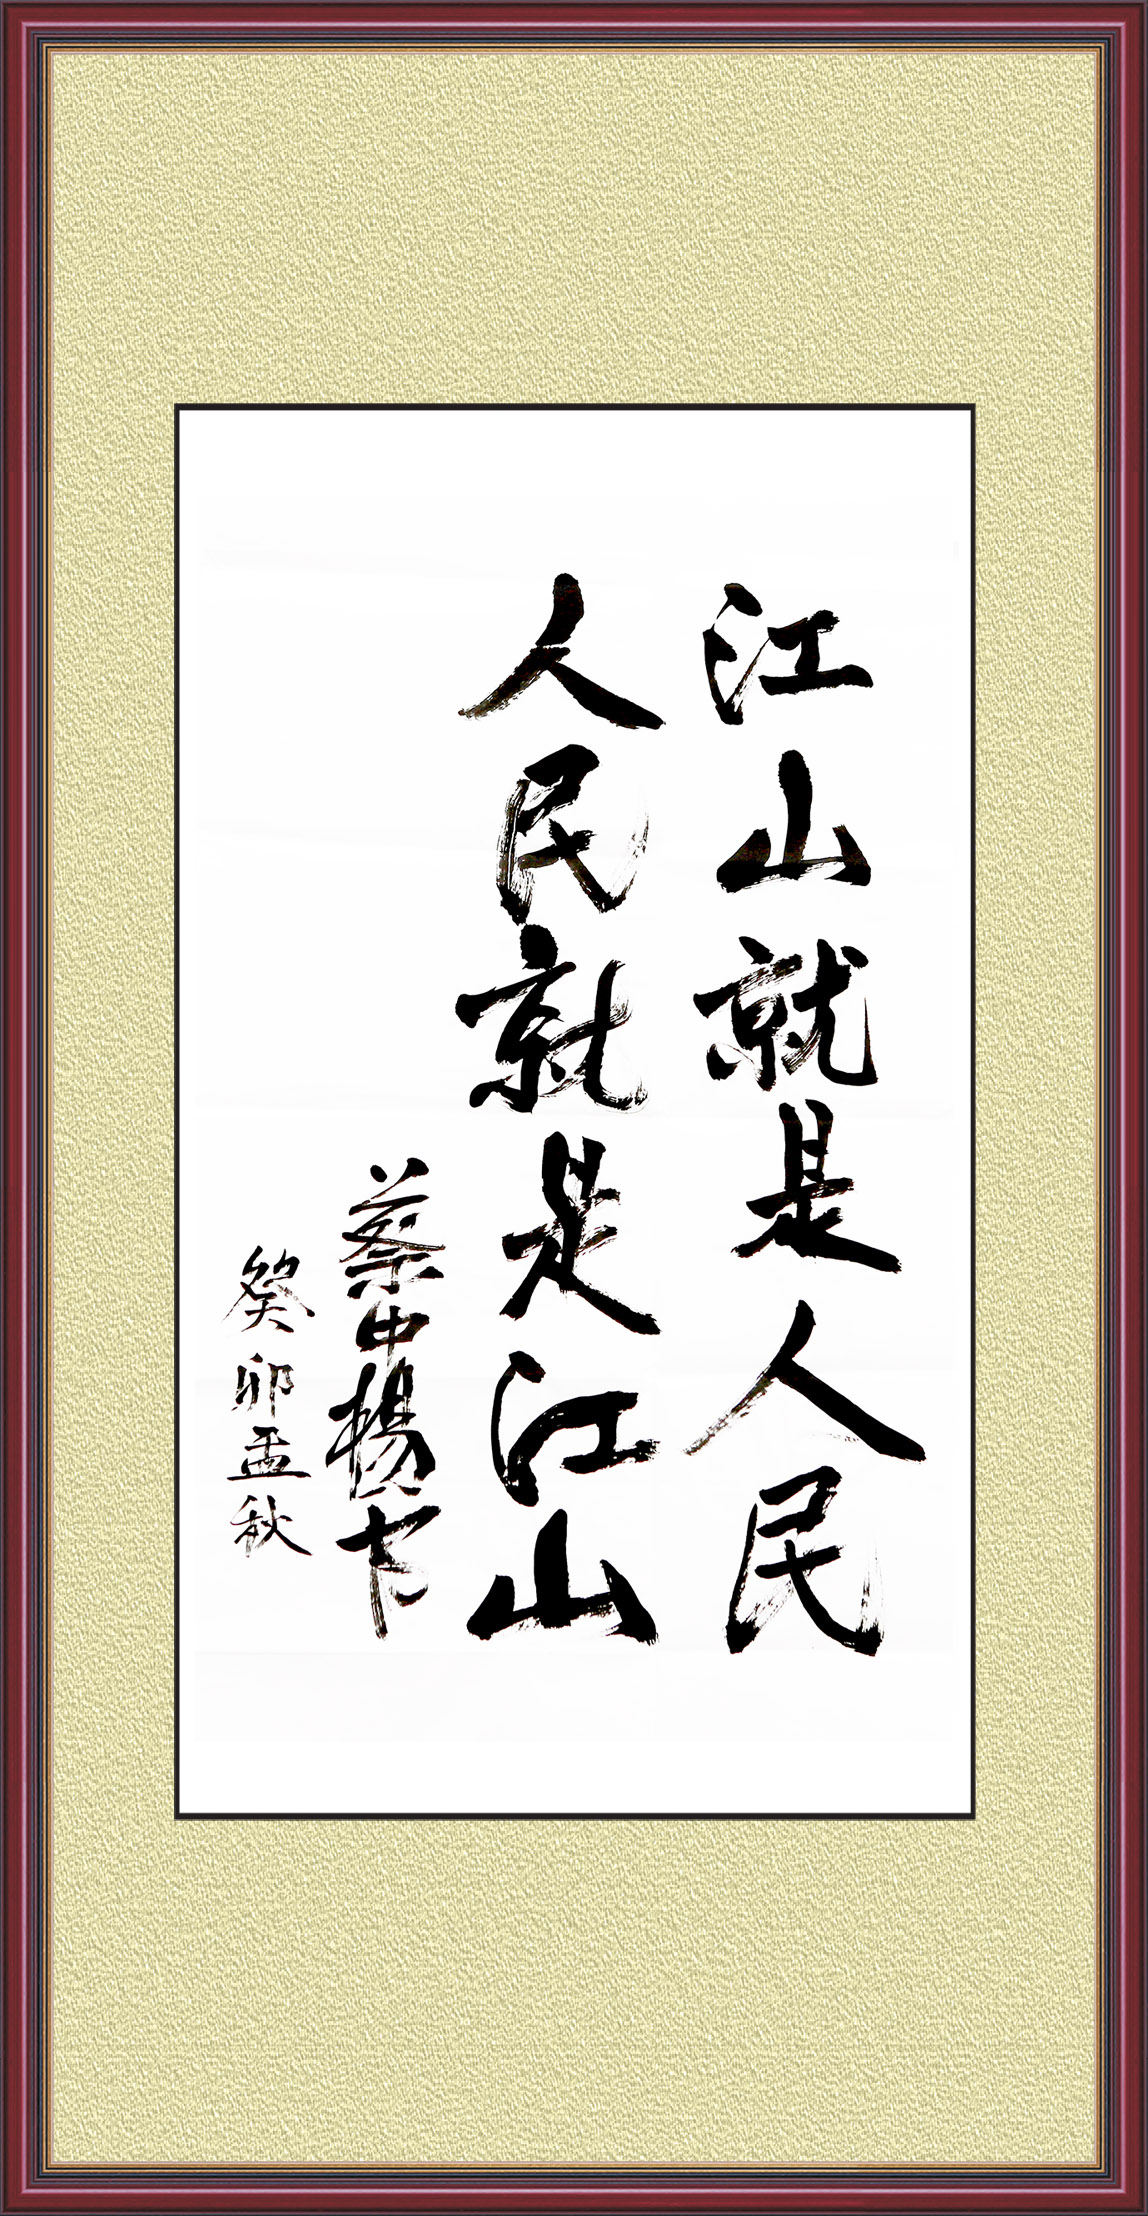 江山就是人民
人民就是江山
蔡中杨书
癸卯孟秋